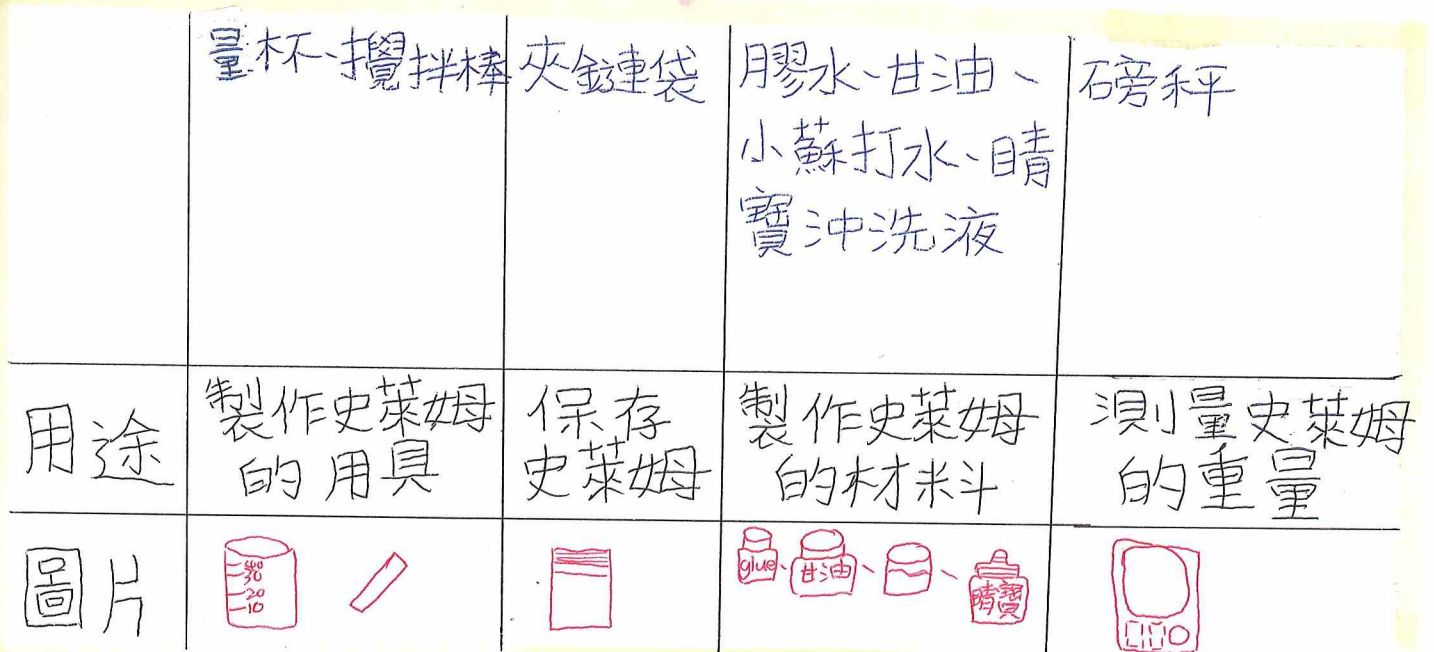 量杯、攪拌棒
夾鏈袋
膠水、甘油、
小蘇打水、睛
寶沖洗液
磅秤
用途
製作史萊姆
的用具
保存
史萊姆
製作史萊姆
的材料
測量史萊姆
的重量
圖片
40
30
20
10
glue
甘油
睛寶